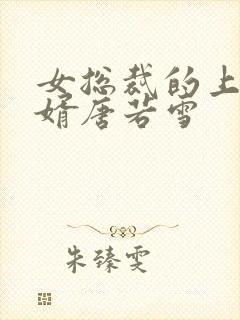 女总裁的上
婿唐若雪
朱臻雯